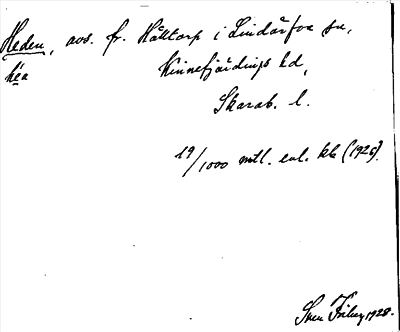 Heden, avs. fr. Hälltorp i Lindärfva sn,
héa Kinnefjärdings hd,
Skarab. l.
19/1000 mtl. enl. kb (1925).
Sven Friberg 1928.